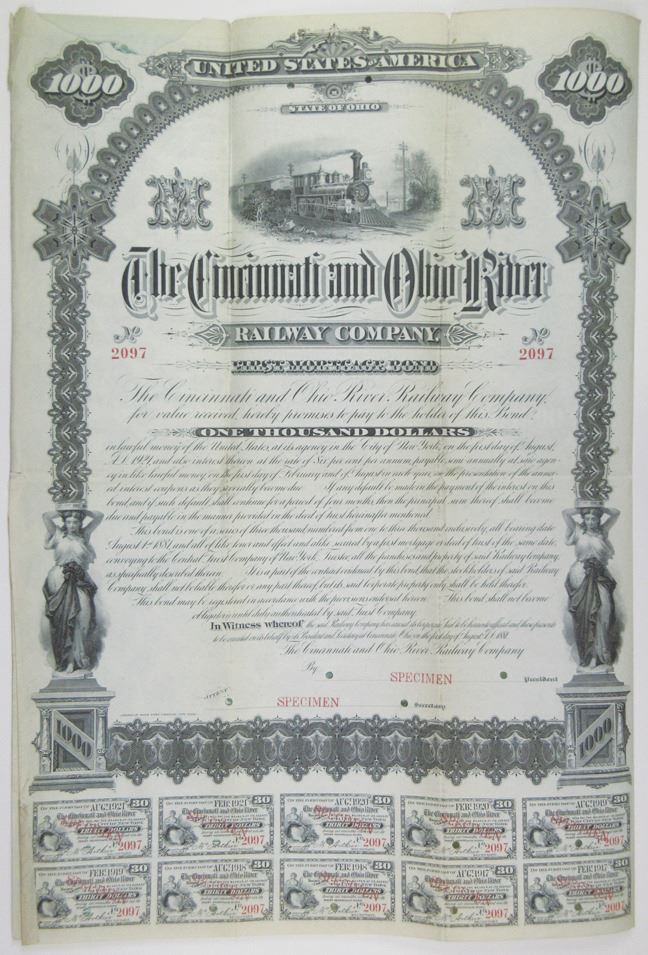 1000
UNITED STATES OF AMERICA
1000
STATE OF OHIO
The Cincinnati and Ohio River
RAILWAY COMPANY.
No 2097
No 2097
FIRST MORTGAGE BOND
The Cincinnati and Ohio River Railway Company,
for value received, hereby promises to pay to the holder of this Bond
ONE THOUSAND DOLLARS
in lawful money of the United States, at its agency in the City of New York, on the first day of August,
A.D. 1921, and also interest thereon at the rate of Six per cent per annum, payable semi annually, at said agen-
cy in like lawful money, on the first day of February and of August in each year, on the presentation of the annex-
ed interest coupons as they severally become due. If any default be made in the payment of the interest on this
bond, and if such default shall continue for a period of four months, then the principal sum thereof shall become
due and payable in the manner provided in the deed of trust hereinafter mentioned.
This bond is one of a series of three thousand, numbered from one to three thousand inclusively, all bearing date
August 1st 1881, and all of like tenor and effect and alike secured by a first mortgage or deed of trust of the same date,
conveying to the Central Trust Company of New York, Trustee, all the franchises and property of said Railway company,
as specifically described therein. It is a part of the contract evidenced by this bond, that the stockholders of said Railway
Company, shall not be liable therefor or any part thereof, but its said corporate property only shall be held therefor.
This bond may be registered in accordance with the provisions indorsed hereon. This bond shall not become
obligatory until duly authenticated by said Trust Company.
In Witness whereof the said Railway Company has caused its corporate Seal to be hereunto affixed and these presents
to be executed on its behalf by its President and Secretary at Cincinnati, Ohio, on the first day of August A.D. 1881.
The Cincinnati and Ohio River Railway Company
By SPECIMEN President
ATTEST SPECIMEN Secretary
1000
1000
AUG. 1921 30 THIRTY DOLLARS No 2097
FEB. 1921 30 THIRTY DOLLARS 2097
30 THIRTY DOLLARS 2097
FEB. 1920 30 THIRTY DOLLARS 2097
AUG. 1919 30 THIRTY DOLLARS 2097
FEB. 1919 30 THIRTY DOLLARS 2097
AUG. 1918 30 THIRTY DOLLARS 2097
FEB. 1918 30 THIRTY DOLLARS 2097
AUG. 1917 30 THIRTY DOLLARS 2097
30 THIRTY DOLLARS 2097